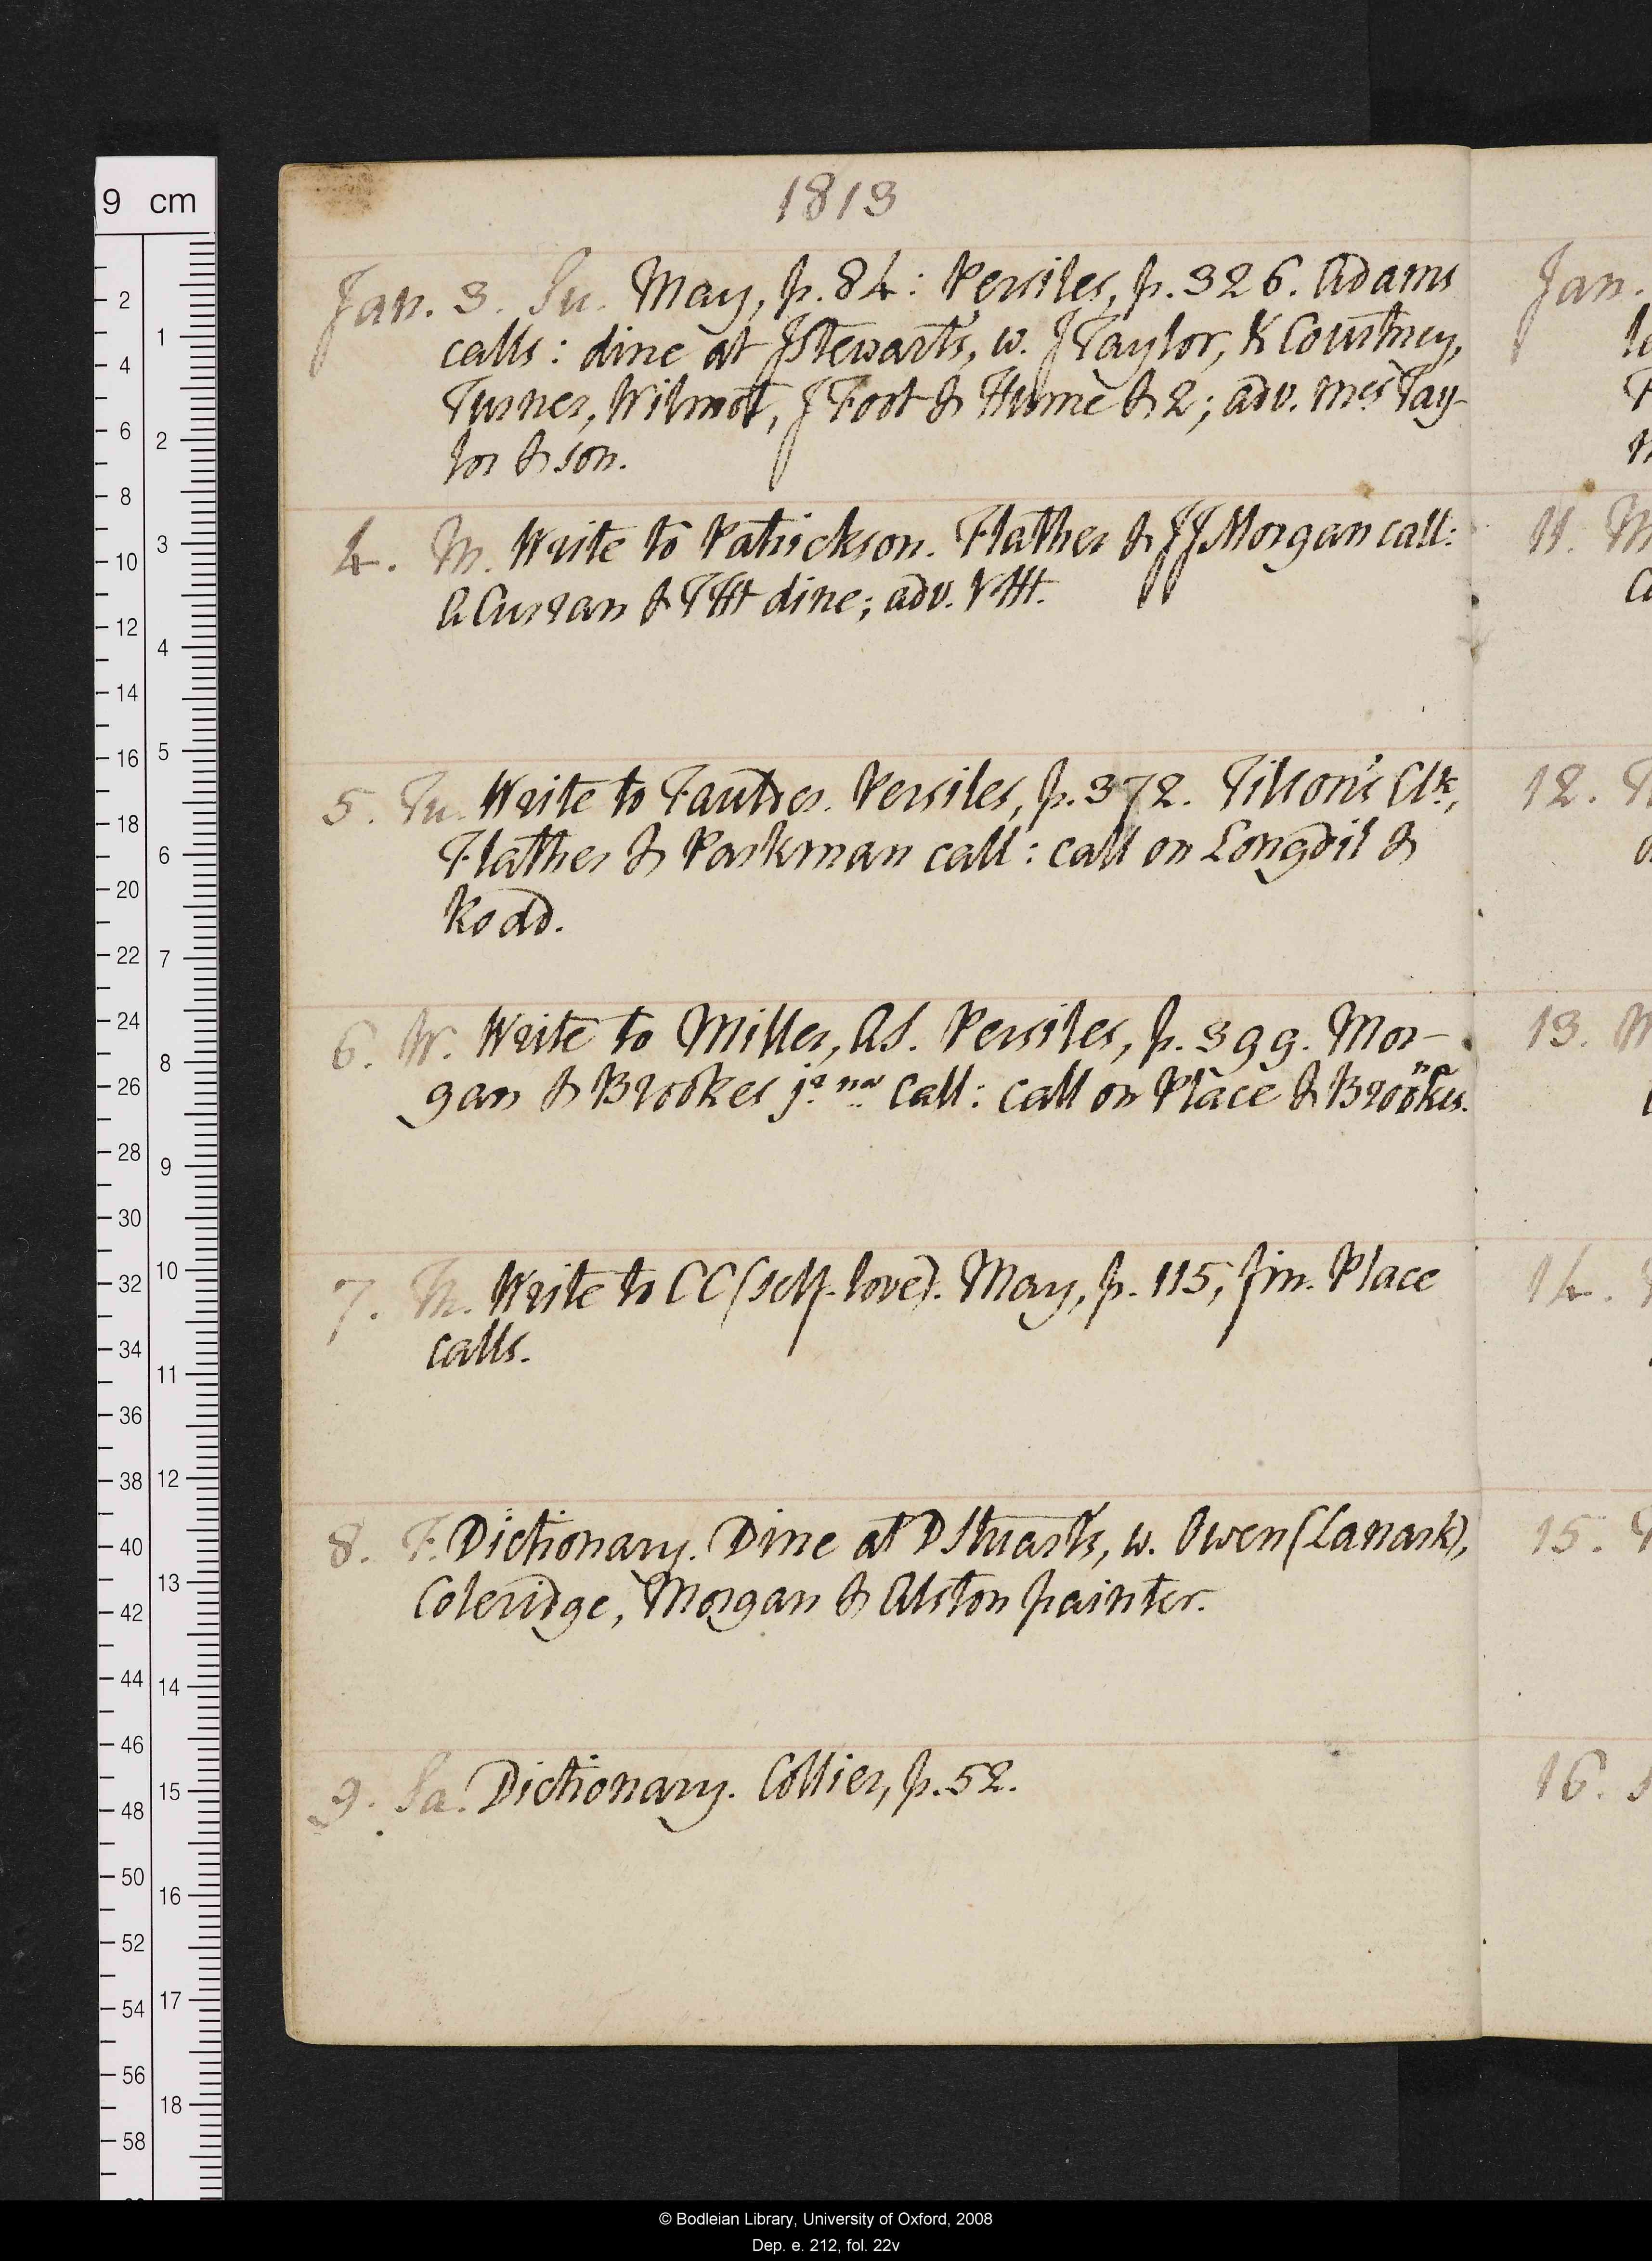 1813
Jan. 3. Su. May, p. 84: Persiles, p. 326. Adams
calls: dine at JStewart's, w. JTaylor, K Courtney,
Turner, Wilmot, J Foot & Hume & 2; adv. Mrs Tay-
lor & son.
4. M. Write to Patrickson. Flather & JJMorgan call:
A Curran & THt dine; adv. Ht.
5. Tu. Write to Fautres. Persiles, p. 372. Tilson's Clk,
Flather & Parkman call: call on Longdil &
Rodd.
6. W. Write to Miller, AS. Persiles, p. 399. Mor-
gan & Brookes jr nn call: call on Place & Brookes. n
7. Th. Write to CC (self-love). May, p. 115, fin. Place
calls.
8. F. Dictionary. Dine at DStuart's, w. Owen (Lanark),
Coleridge, Morgan & Alston painter.
9. Sa. Dictionary. Collier, p. 52.
Jan.
11. M
12. T
13. W
14.
15.
16. S
9 cm
2
4
6
8
10
12
14
16
18
20
22
24
26
28
30
32
34
36
38
40
42
44
46
48
50
52
54
56
58
1
2
3
4
5
6
7
8
9
10
11
12
13
14
15
16
17
18
© Bodleian Library, University of Oxford, 2008
Dep. e. 212, fol. 22v